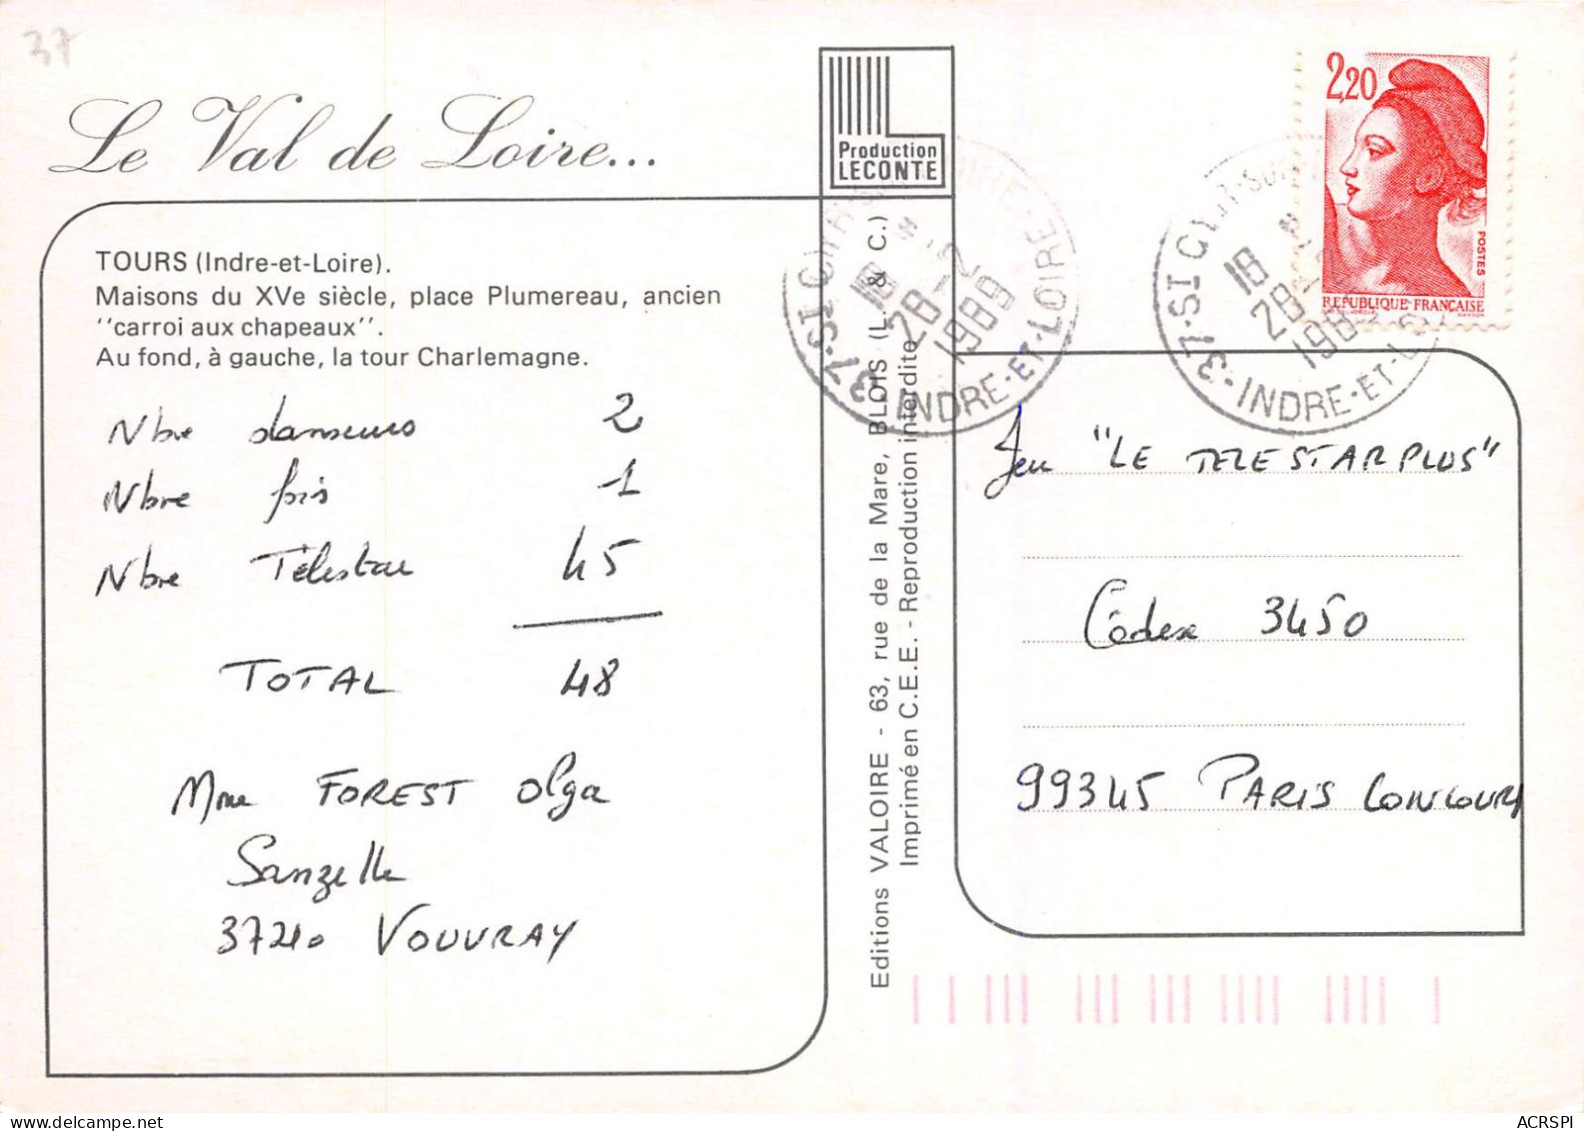 37
Le Val de Loire...
Production
LECONTE
TOURS (Indre-et-Loire).
Maisons du XVe siècle, place Plumereau, ancien
''carroi aux chapeaux''.
Au fond, à gauche, la tour Charlemagne.
Nbre danseurs 2
Nbre fois 1
Nbre Téléstar 45
TOTAL 48
Mme FOREST Olga
Sanzelle
37210 VOUVRAY
Editions VALOIRE - 63, rue de la Mare, BLOIS (L. & C.)
Imprimé en C.E.E. - Reproduction interdite
37-ST CYR-SUR-LOIRE
18 H
28-2
1989
INDRE-ET-LOIRE
37-ST CYR-SUR
18 H
28-2
198
INDRE-ET-LO
2,20
POSTES
REPUBLIQUE FRANÇAISE
Jeu "LE TELESTARPLUS"
Cedex 3450
99345 PARIS CONCOURS
ACRSPI